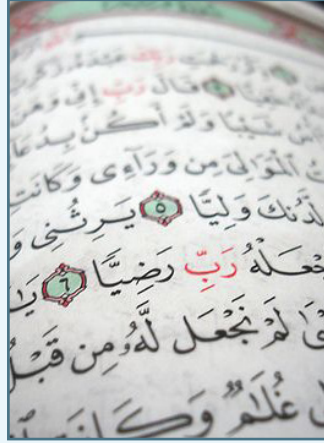 رَبِّكَ عَبْدَهُ زَكَرِ
قَالَ رَبِّ إِنِّى وَهَنَ
شَيْبًا وَلَمْ أَكُنۢ بِدُعَا
ٱلْمَوَٰلِىَ مِن وَرَآءِى وَكَانَتِ
لَّدُنكَ وَلِيًّا ٥ يَرِثُنِى وَ
ٱجْعَلْهُ رَبِّ رَضِيًّا ٦ يَٰ
لَمْ نَجْعَل لَّهُۥ مِن قَبْلُ
غُلَٰمٌ وَكَانَتِ